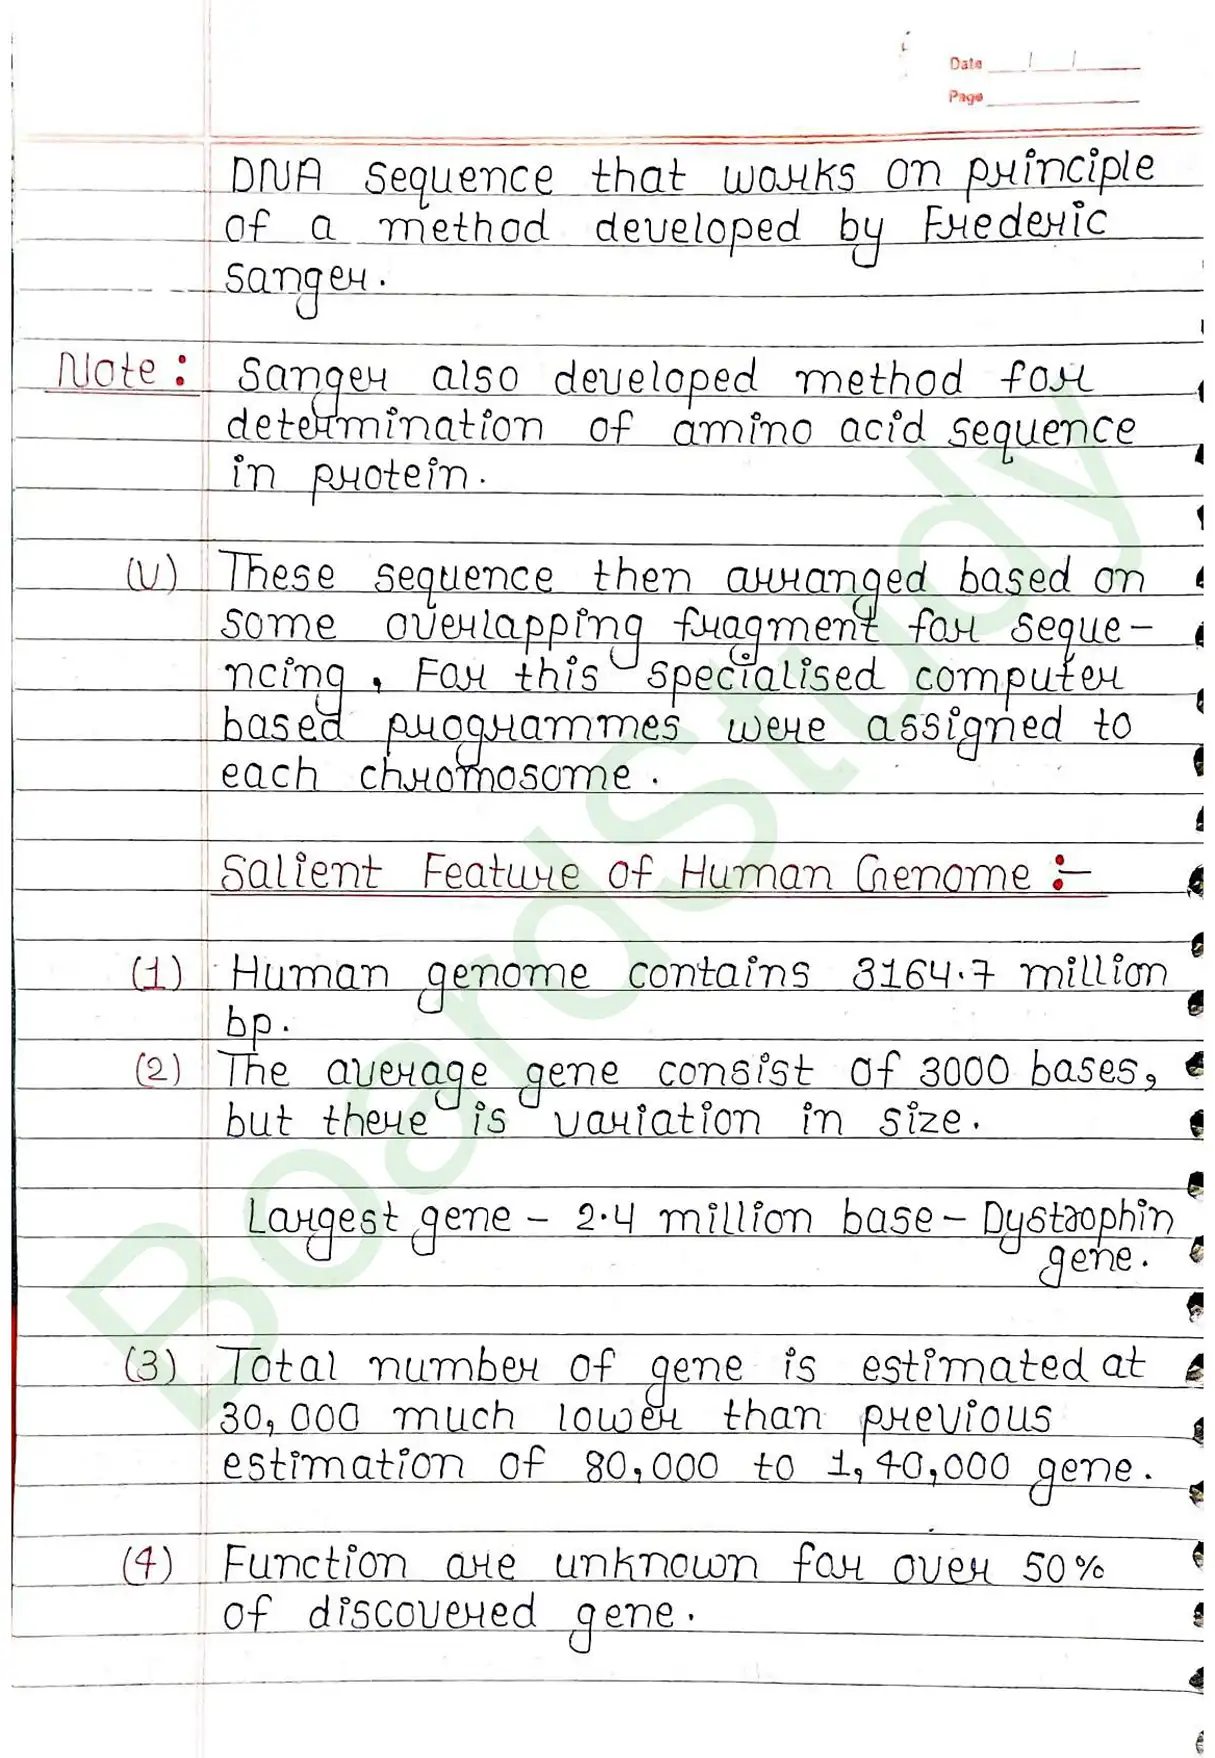 Date / /
Page
DNA sequence that works on principle
of a method developed by Frederic
Sanger.
Note: Sanger also developed method for
determination of amino acid sequence
in protein.
(V) These sequence then arranged based on
some overlapping fragment for seque-
ncing, For this specialised computer
based programmes were assigned to
each chromosome.
Salient Feature of Human Genome :-
(1) Human genome contains 3164.7 million
bp.
(2) The average gene consist of 3000 bases,
but there is variation in size.
Largest gene - 2.4 million base - Dystrophin
gene.
(3) Total number of gene is estimated at
30,000 much lower than previous
estimation of 80,000 to 1,40,000 gene.
(4) Function are unknown for over 50%
of discovered gene.
BoardStudy